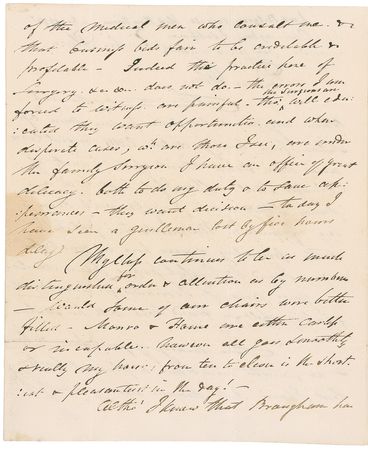 of the Medical men who consult me. &
that business bids fair to be creditable &
profitable – Indeed the practice here of
Surgery &c &c. does not do – the errors I am
forced to witness are painful. tho' the surgeons are well edu:
:cated they want opportunities. and when
desperate cases, wh. are those I see, are under
the family Surgeon I have an office of great
delicacy. both to do my duty & to save ap:
:pearances – they want decision – to day I
have seen a gentleman lost by five hours
delay)
My Class continues to be as much
distinguished for order & attention as by numbers
– Would some of our chairs were better
filled – Monro & Home are either careless
or incapable. however all goes smoothly
& really my hour; from ten to eleven is the short:
:est & pleasantest in the day! –
Altho' I knew that Brougham has